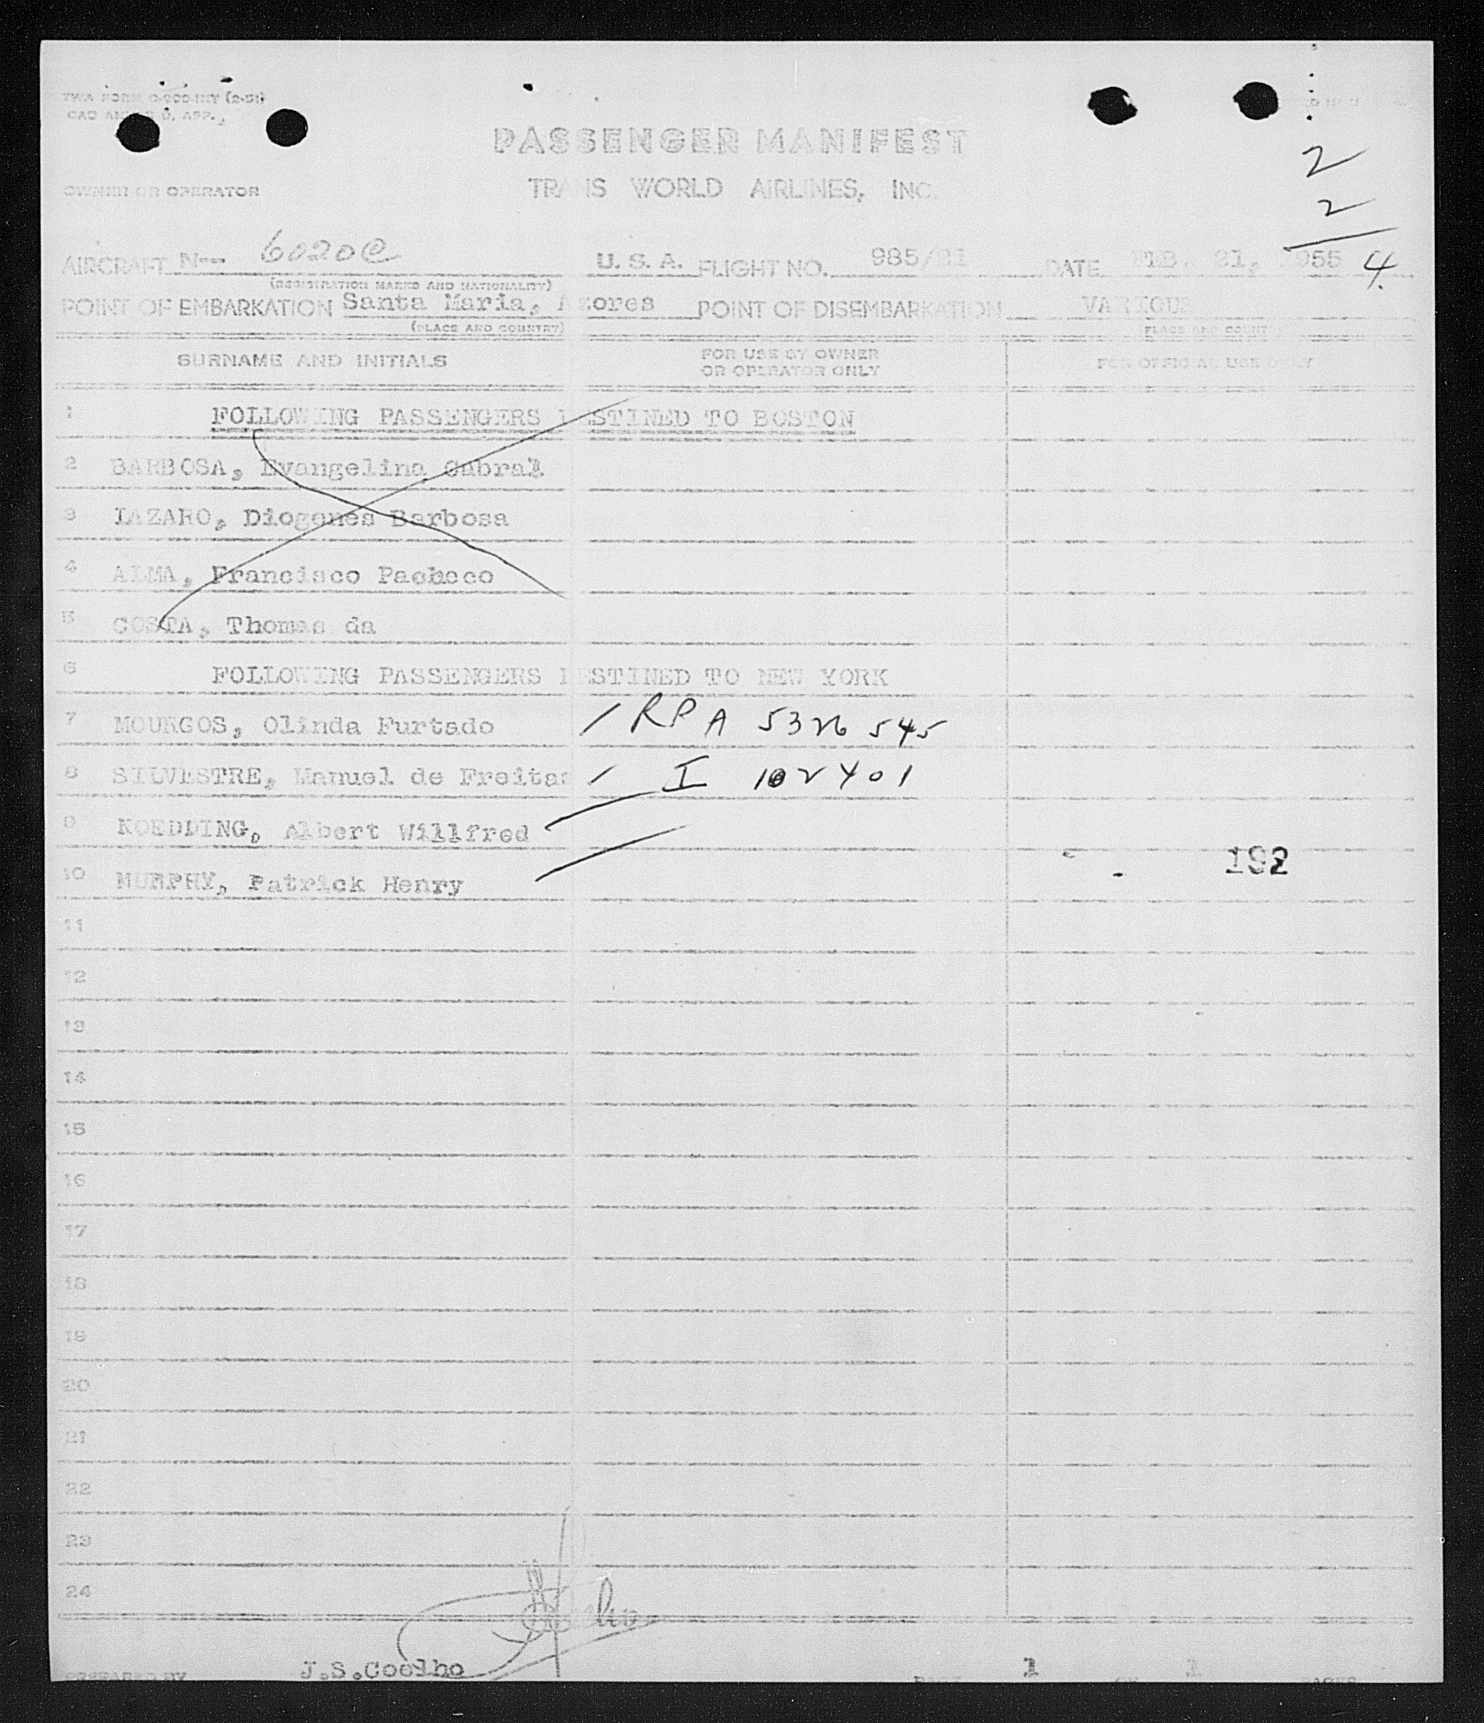 PASSENGER MANIFEST
OWNER OR OPERATOR TRANS WORLD AIRLINES, INC.
2
2
4
AIRCRAFT N-- 6020C U. S. A. FLIGHT NO. 985/21 DATE FEB. 21, 1955
(REGISTRATION MARKS AND NATIONALITY)
POINT OF EMBARKATION Santa Maria, Azores POINT OF DISEMBARKATION VARIOUS
(PLACE AND COUNTRY) (PLACE AND COUNTRY)
SURNAME AND INITIALS FOR USE BY OWNER OR OPERATOR ONLY FOR OFFICIAL USE ONLY
1 FOLLOWING PASSENGERS DESTINED TO BOSTON
2 BARBOSA, Evangelina Cabral
3 LAZARO, Diogenes Barbosa
4 ALMA, Francisco Pacheco
5 COSTA, Thomas da
6 FOLLOWING PASSENGERS DESTINED TO NEW YORK
7 MOURGOS, Olinda Furtado / RPA 5326 545
8 SILVESTRE, Manuel de Freitas / I 102401
9 KOEDDING, Albert Willfred
10 MURPHY, Patrick Henry 192
11
12
13
14
15
16
17
18
19
20
21
22
23
24
PREPARED BY J.S.Coelho PAGE 1 OF 1 PAGES